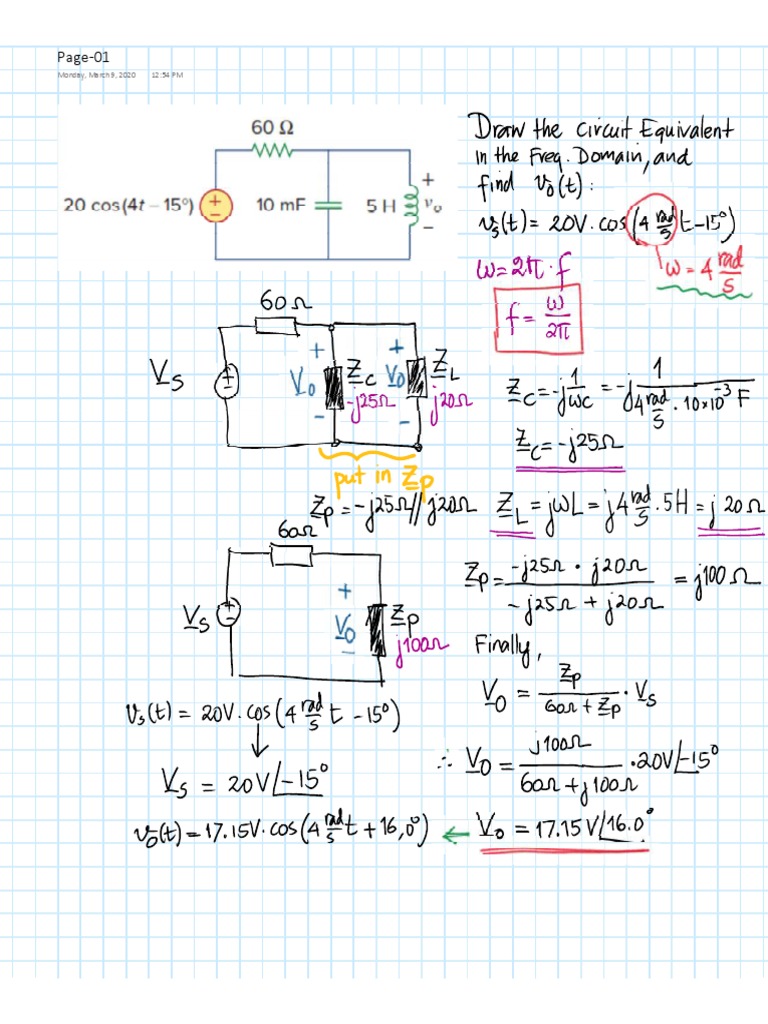 Page-01
Monday, March 9, 2020 12:54 PM
60 Ω
20 cos(4t – 15°)
+
–
10 mF
5 H
+
vo
–
Draw the Circuit Equivalent
in the Freq. Domain, and
find vo(t):
vs(t) = 20V · cos(4 rad/s t – 15°)
ω = 2π · f
ω = 4 rad/s
f = ω/2π
60Ω
Vs
+
–
+
Vo
–
ZC
-j25Ω
+
Vo
–
ZL
j20Ω
put in Zp
Zp = -j25Ω // j20Ω
ZC = -j 1/ωC = -j 1/(4 rad/s · 10×10⁻³ F)
ZC = -j25Ω
ZL = jωL = j4 rad/s · 5H = j 20Ω
Zp = (-j25Ω · j20Ω)/(-j25Ω + j20Ω) = j100Ω
60Ω
Vs
+
–
+
Vo
–
Zp
j100Ω
Finally,
Vo = Zp/(60Ω + Zp) · Vs
vs(t) = 20V · cos(4 rad/s t – 15°)
↓
Vs = 20V∠-15°
∴ Vo = j100Ω/(60Ω + j100Ω) · 20V∠-15°
vo(t) = 17.15V · cos(4 rad/s t + 16,0°) ← Vo = 17.15V∠16.0°